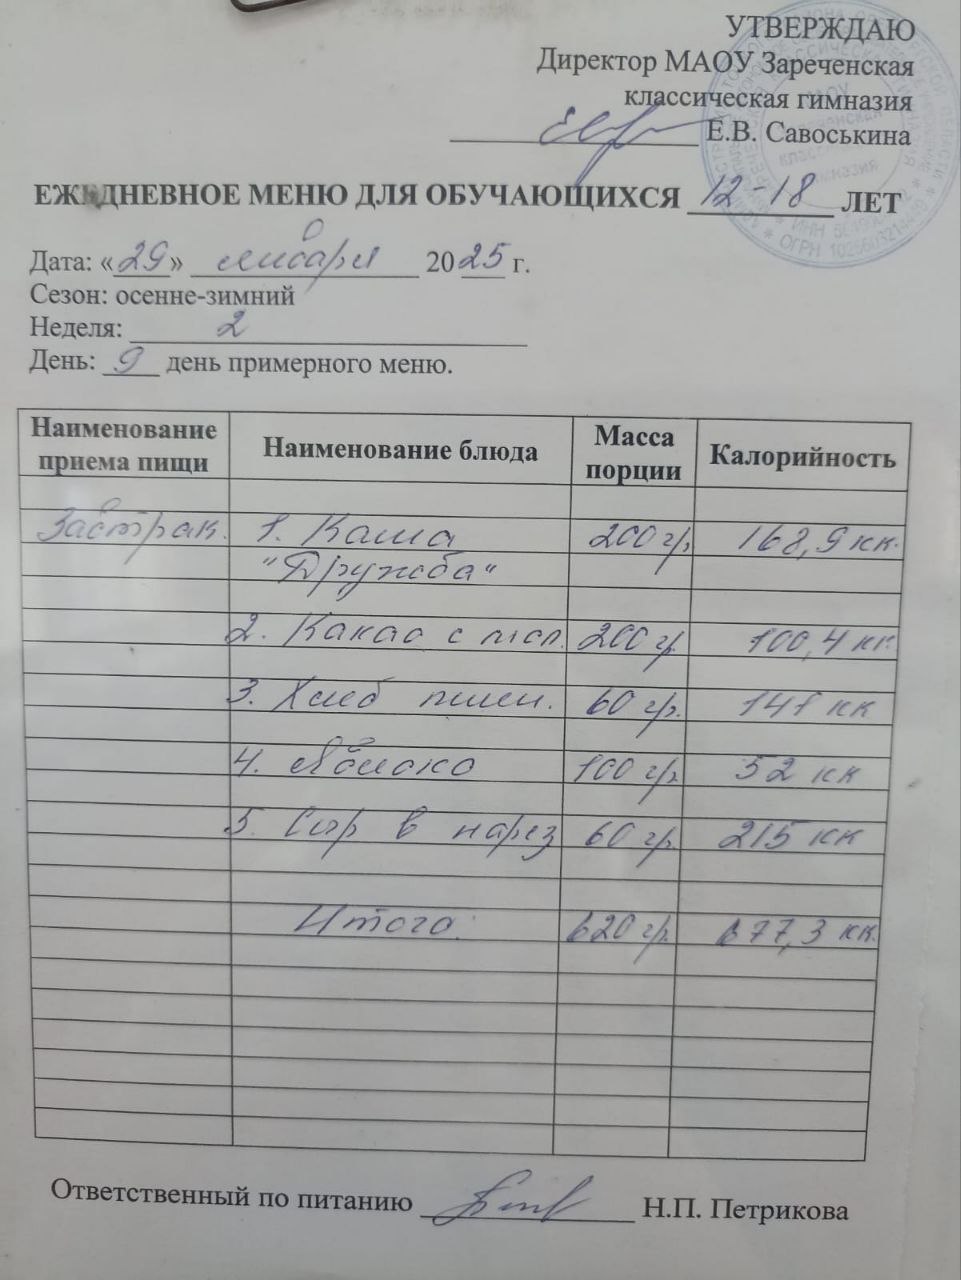 УТВЕРЖДАЮ
Директор МАОУ Зареченская
классическая гимназия
Е.В. Савоськина
ЕЖЕДНЕВНОЕ МЕНЮ ДЛЯ ОБУЧАЮЩИХСЯ 12-18 ЛЕТ
Дата: «29» января 2025 г.
Сезон: осенне-зимний
Неделя: 2
День: 9 день примерного меню.
Наименование приема пищи Наименование блюда Масса порции Калорийность
Завтрак. 1. Каша 200 гр. 168,9 кк.
"Дружба"
2. Какао с мол. 200 гр. 100,4 кк.
3. Хлеб пшен. 60 гр. 141 кк
4. Яблоко 100 гр. 52 кк
5. Сыр в нарез 60 гр. 215 кк
Итого: 620 гр. 677,3 кк.
Ответственный по питанию Н.П. Петрикова